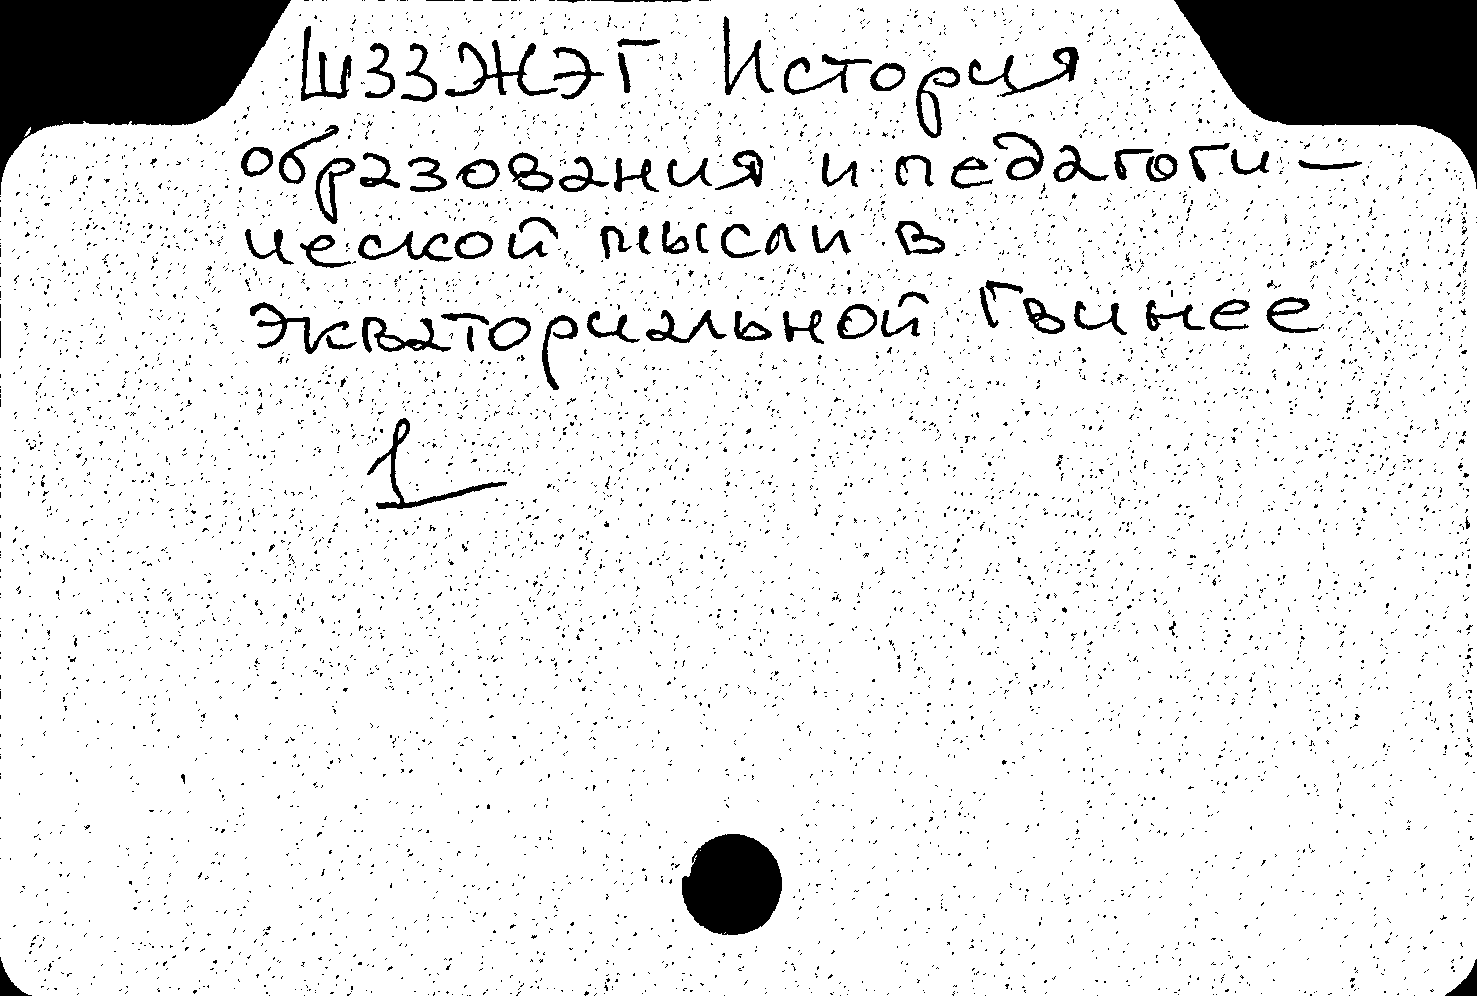 Ш33ЖЭГ История
образования и педагоги-
ческой мысли в
Экваториальной Гвинее
1